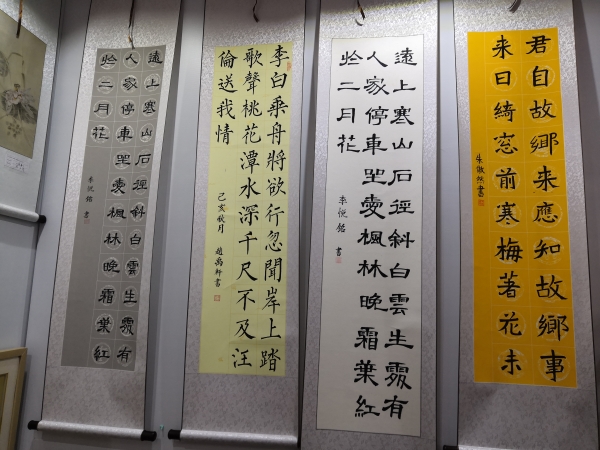 遠上寒山石徑斜白雲生處有
人家停車坐愛楓林晚霜葉紅
於二月花
李悅銘 書
李白乘舟將欲行忽聞岸上踏
歌聲桃花潭水深千尺不及汪
倫送我情
己亥秋月 趙禹軒書
遠上寒山石徑斜白雲生處有
人家停車坐愛楓林晚霜葉紅
於二月花
李悅銘 書
君自故鄉來應知故鄉事
來日綺窓前寒梅著花未
朱傲然書